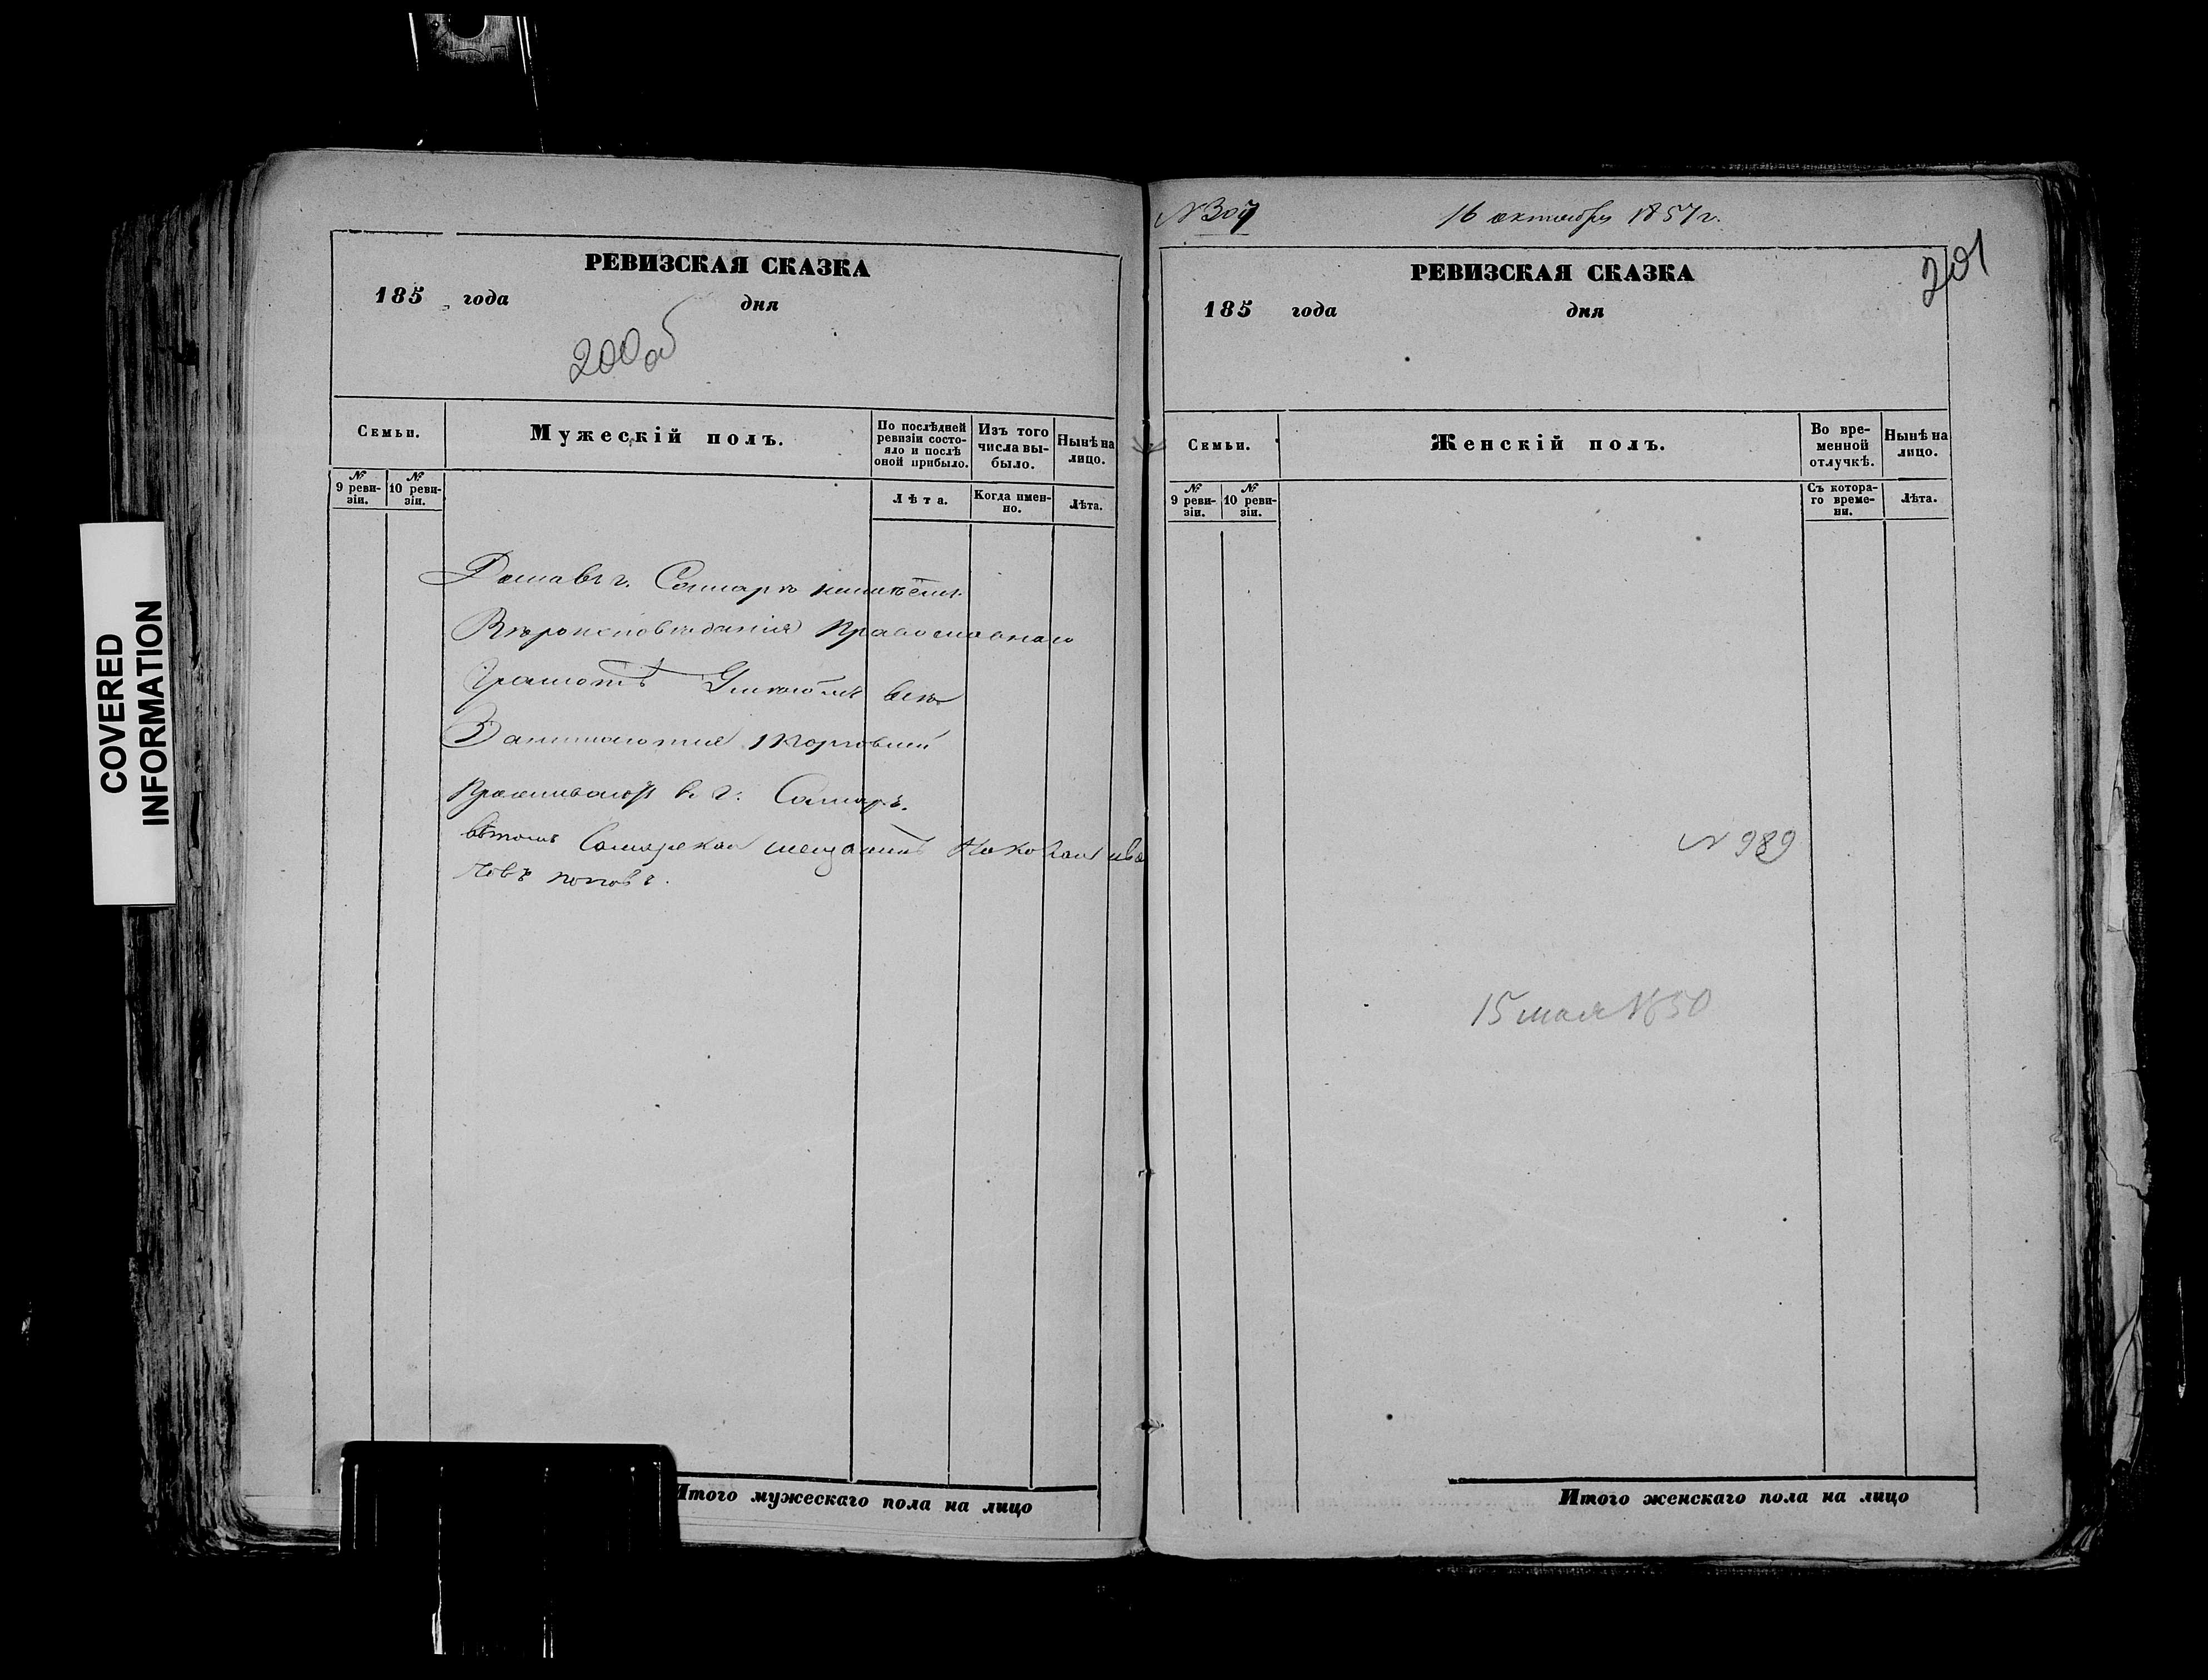 РЕВИЗСКАЯ СКАЗКА
185 года дня
200об
Семьи.
Мужескій полъ.
По послѣдней ревизіи состояло и послѣ оной прибыло.
Изъ того числа выбыло.
Нынѣ на лицо.
№ 9 ревизіи.
№ 10 ревизіи.
Лѣта.
Когда именно.
Лѣта.
Дома въ г. Самарѣ
Вѣроисповѣданія Православнаго
Грамотѣ
Занимаются торговлей
Проживаютъ въ г. Самарѣ.
Самарской мещанинъ
Поповъ.
Итого мужескаго пола на лицо
COVERED
INFORMATION
№ 307
16 октября 1857 г.
201
РЕВИЗСКАЯ СКАЗКА
185 года дня
Семьи.
Женскій полъ.
Во временной отлучкѣ.
Нынѣ на лицо.
№ 9 ревизіи.
№ 10 ревизіи.
Съ котораго времени.
Лѣта.
№ 989
15 мая 1850
Итого женскаго пола на лицо